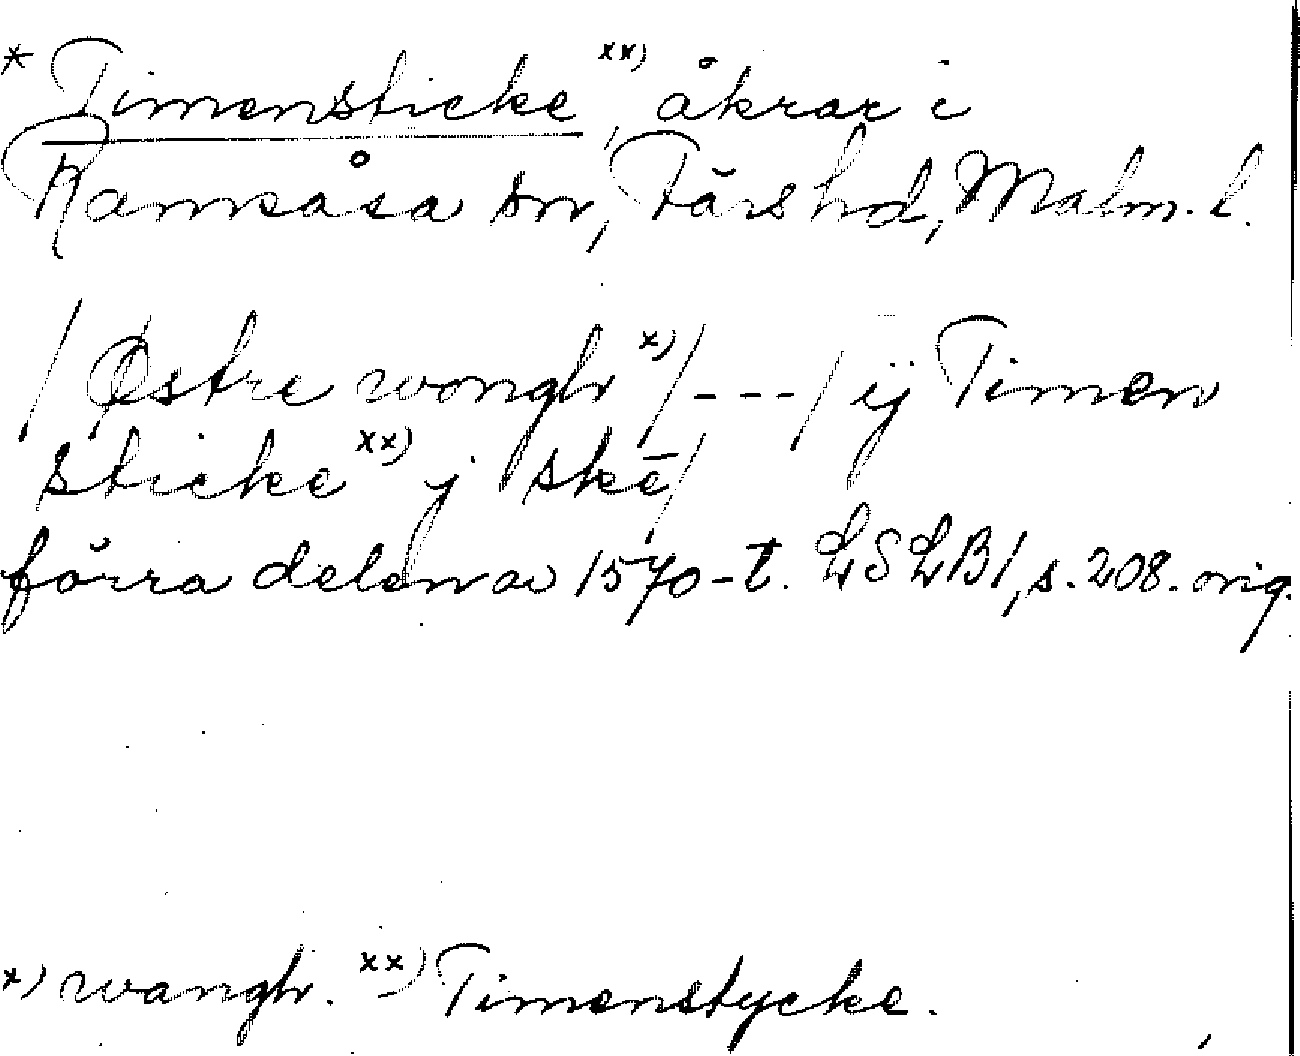 * Timensticke xx), åkrar i
Ramsåsa sn, Färs hd, Malm. l.
/Østre wongh x)/---/ ij Timen
sticke xx) j skē/
förra delen av 1570-t. LSLB1, s. 208. orig.
x) wangh. xx) Timenstycke.